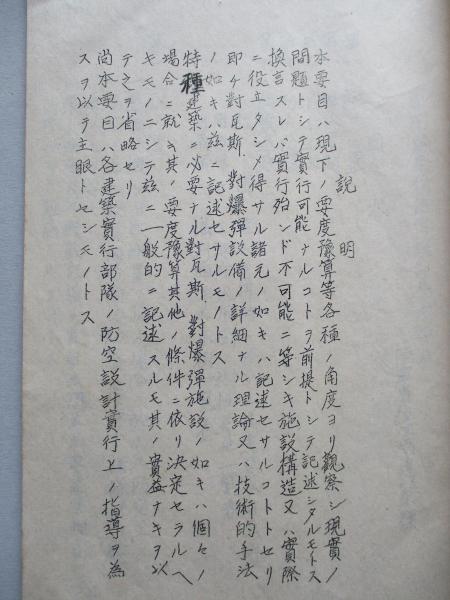 説明
本要目ハ現下ノ要度豫算等各種ノ角度ヨリ觀察シ現實ノ
問題トシテ實行可能ナルコトヲ前提トシテ記述シタルモトス
換言スレバ實行殆ンド不可能ニ等シキ施設構造又ハ實際
ニ役立タシメ得サル諸元ノ如キハ記述セサルコトトセリ
即チ對瓦斯、對爆彈設備ノ詳細ナル理論又ハ技術的手法
ノ如キハ玆ニ記述セサルモノトス
特種建築ニ必要ナル對瓦斯、對爆彈施設ノ如キハ個々ノ
場合ニ就キ其ノ要度豫算其他ノ條件ニ依リ決定セラルヘ
キモノニシテ玆ニ一般的ニ記述スルモ其ノ實益ナキヲ以
テ之ヲ省略セリ
尚本要目ハ各建築實行部隊ノ防空設計實行上ノ指導ヲ為
スヲ以テ主眼トセシモノトス